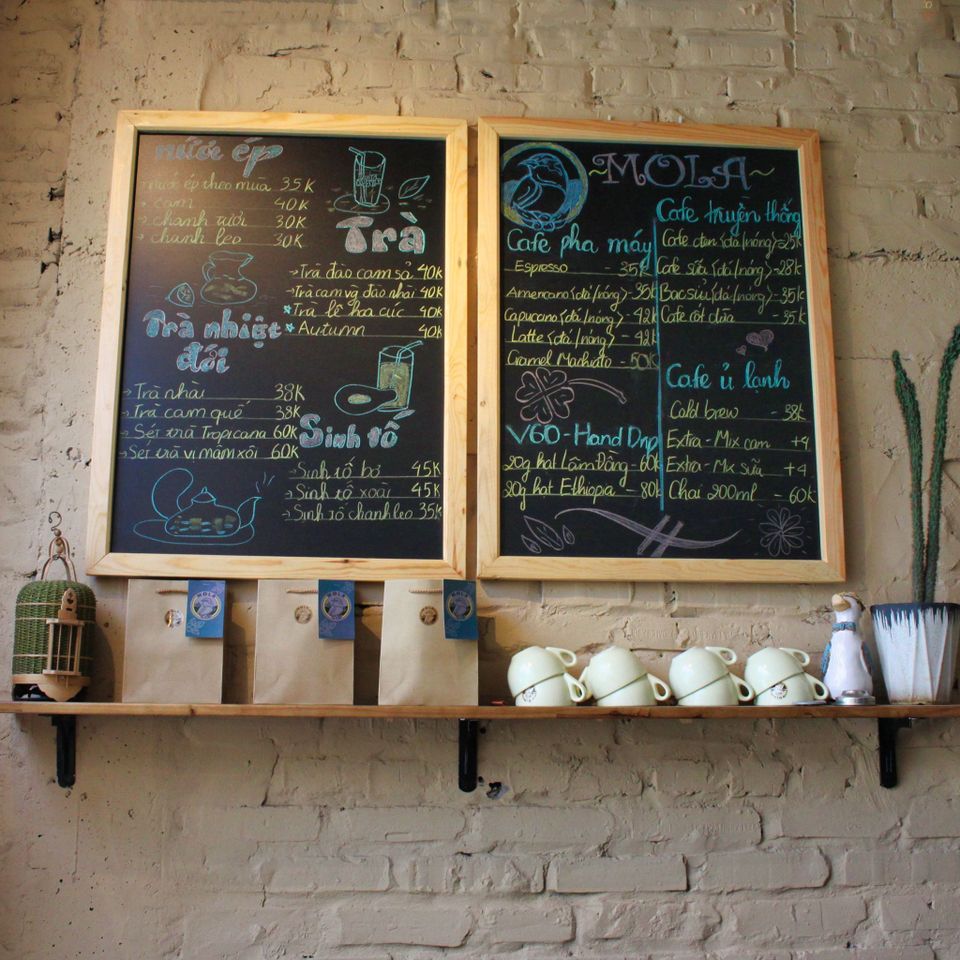 nước ép
nước ép theo mùa 35K
→ cam 40K
→ chanh tươi 30K
→ chanh leo 30K
Trà
→ Trà đào cam sả 40K
→ Trà cam vg đào nhài 40K
★ Trà lê hoa cúc 40K
★ Autumn 40K
Trà nhiệt
đới
→ Trà nhài 38K
→ Trà cam quế 38K
→ Set trà Tropicana 60K
→ Set trà vị mâm xôi 60K
Sinh tố
→ Sinh tố bơ 45K
→ Sinh tố xoài 45K
→ Sinh tố chanh leo 35K
~MOLA~
Cafe pha máy
Espresso - 35K
Americano (đá/nóng) - 35K
Capuccino (đá/nóng) - 42K
Latte (đá/nóng) - 42K
Caramel Machiato - 50K
V60 - Hand Drip
20g hạt Lâm Đồng - 60K
20g hạt Ethiopia - 80K
Cafe truyền thống
Cafe đen (đá/nóng) - 25K
Cafe sữa (đá/nóng) - 28K
Bạc sỉu (đá/nóng) - 35K
Cafe cốt dừa - 35K
Cafe ủ lạnh
Cold brew - 38K
Extra - Mix cam +4
Extra - Mix sữa +4
Chai 200ml - 60K
MOLA
MOLA
MOLA